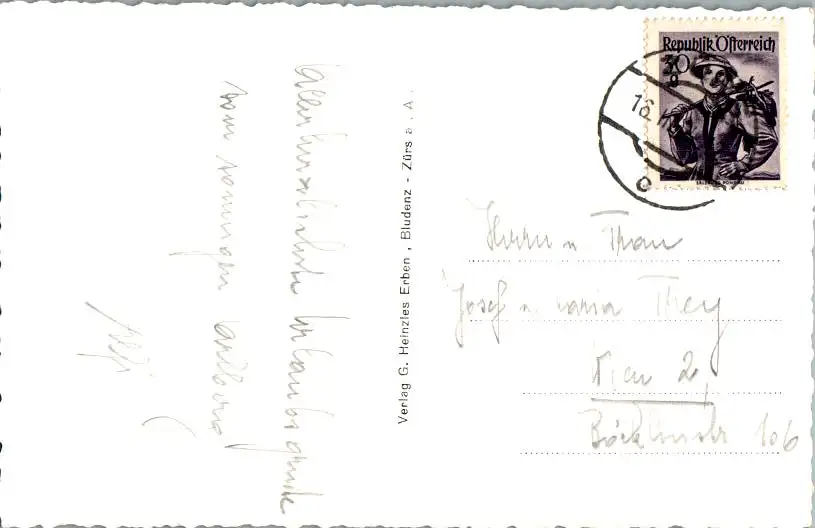 Allerherzlichste Urlaubsgrüße
vom sonnigen Arlberg
Verlag G. Heinzles Erben , Bludenz - Zürs a. A.
Republik Österreich
30
g
16.
Herrn u Frau
Josef u. Maria They
Wien 2,
Böcklinstr 106